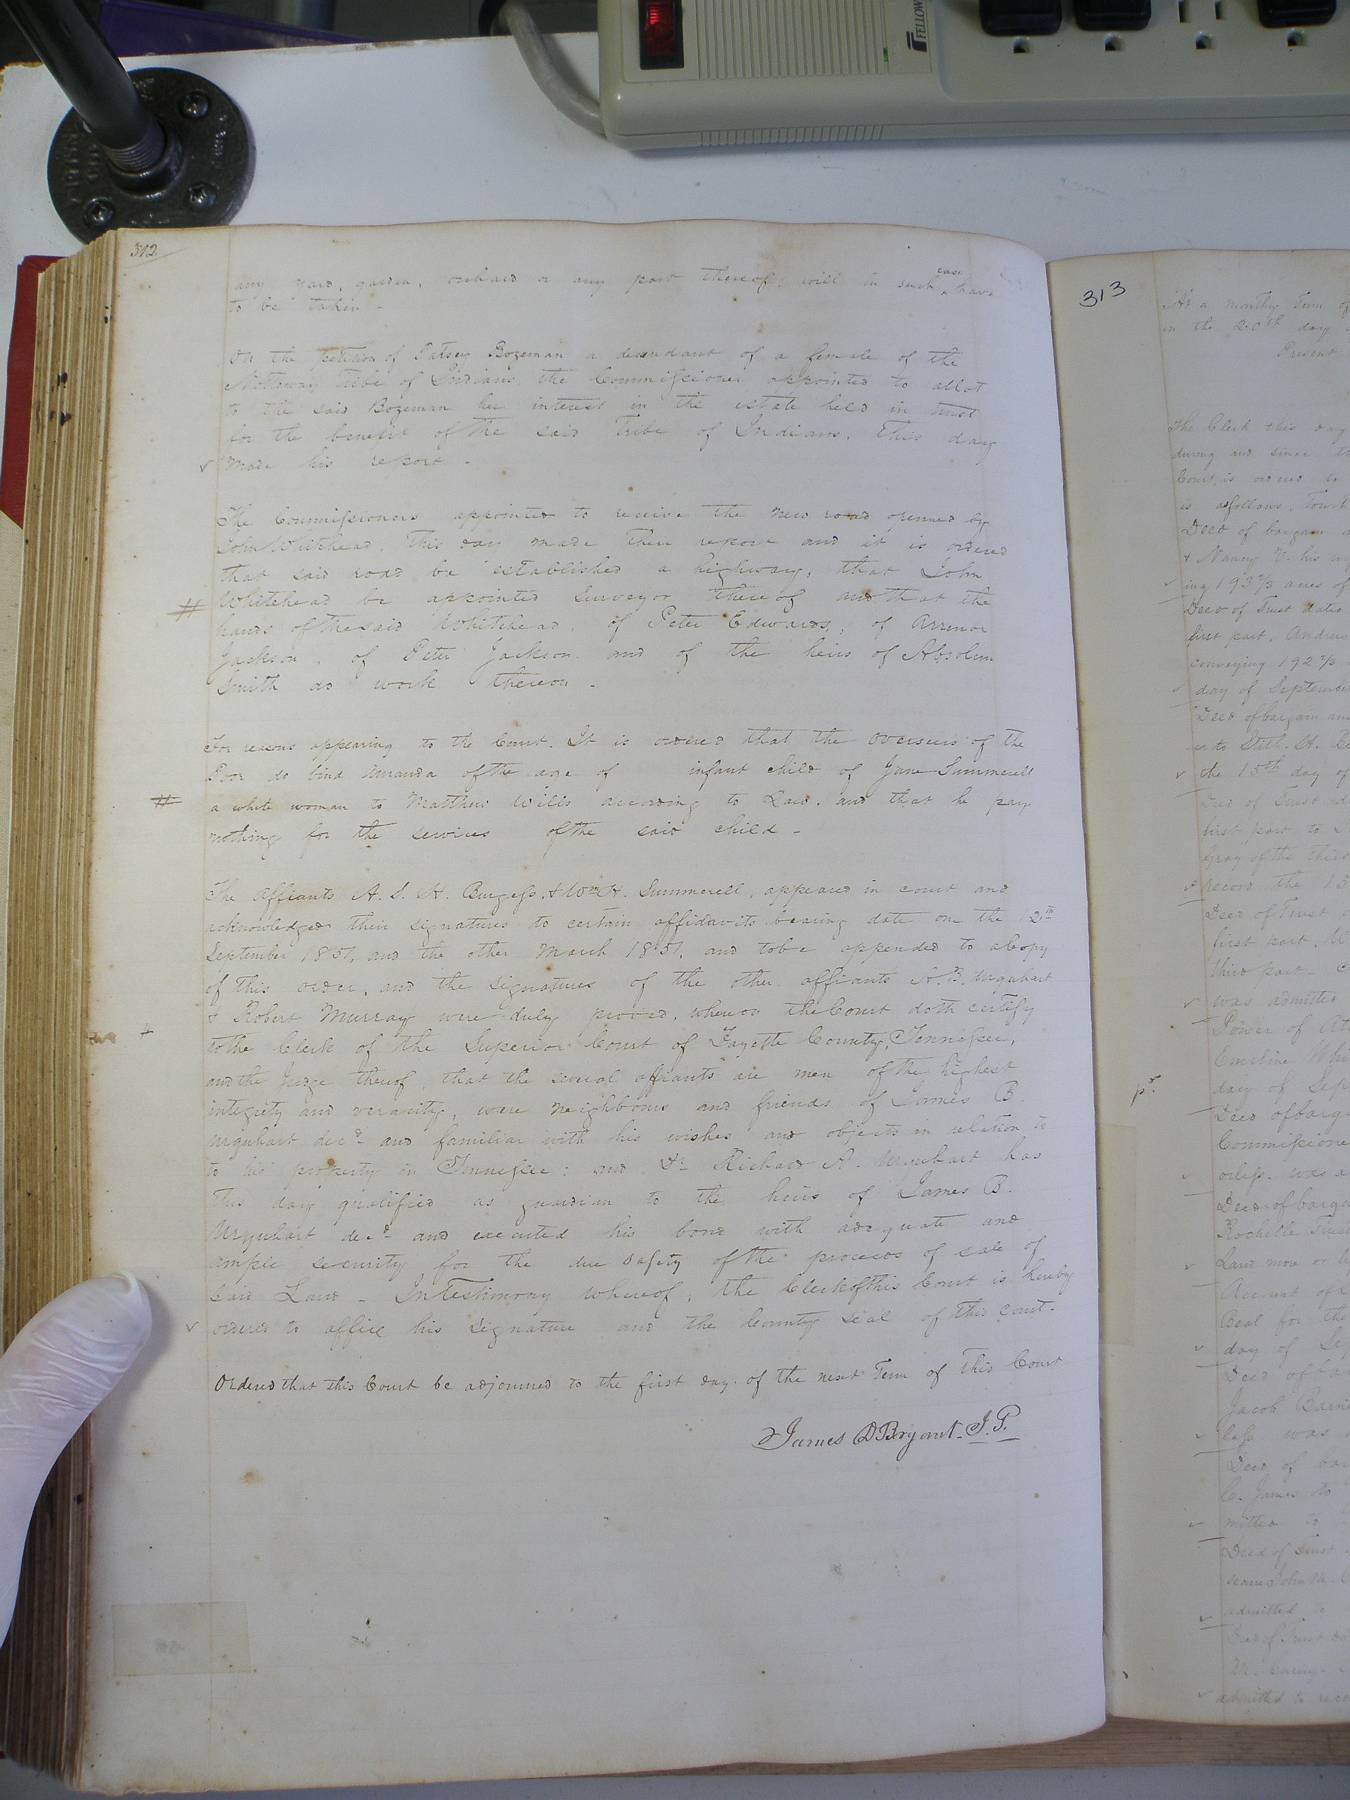 312
any yard, garden, orchard or any part thereof, will in such case have
to be taken.
On the petition of Patsey Bozeman a decendant of a female of the
Nottoway tribe of Indians the Commissioner appointed to allot
to the said Bozeman her interest in the estate held in trust
for the benefit of the said Tribe of Indians, this day
made his report.
The Commissioners appointed to receive the new road opened by
John Whitehead, this day made their report and it is ordered
that said road be established a highway, that John
Whitehead be appointed Surveyor thereof and that the
hands of the said Whitehead, of Peter Edwards, of
Jackson, of Peter Jackson and of the heirs of Absolum
Smith do work thereon.
For reasons appearing to the Court. It is ordered that the overseers of the
Poor do bind Miranda of the age of infant child of Jane Summerell
a white woman to Matthew Wills according to Law, and that he pay
nothing for the services of the said child -
The affiants A. S. H. Burgess, & Wm H. Summerell, appeared in court and
acknowledged their signatures to certain affidavits bearing date on the 12th
September 1851, and the other March 1851, and to be appended to a copy
of this order, and the signatures of the other affiants A. B. Urquhart
& Robert Murray were duly proved, whereon the Court doth certify
to the Clerk of the Superior Court of Fayette County, Tennessee,
and the Judge thereof, that the several affiants are men of the highest
integrity and veracity, were neighbours and friends of James B.
Urquhart decd. and familiar with his wishes and objects in relation to
to his property in Tennessee: and Dr. Richard A. Urquhart has
this day qualified as guardian to the heirs of James B.
Urquhart decd. and executed his bond with adequate and
ample security for the due safety of the proceeds of sale of
said Land - In Testimony whereof, the Clerk of this Court is hereby
ordered to affix his signature and the County seal of this court.
Ordered that this Court be adjourned to the first day of the next Term of this Court
James D Bryant. J. P.
313
At a monthly Term of
in the 20th day
Present
The Clerk this day
during and since
Court is ordered to
is as follows,
Deed of bargain
& Nancy his
ing 193 acres of
Deed of Trust dated
first part, Andrew
conveying 192
day of September
Deed of bargain and
to Stith. H.
the 15th day of
Deed of Trust
first part to
Gray of the third
record the 13
Deed of Trust
first part,
third part.
was admitted
Power of At
Emeline Whi
day of Sep
Deed of barg
Commissione
was a
Deed of barga
Rochelle
Land more or
Account of
Beal for the
day of Se
Deed of ba
Jacob Barn
less was
Deed of bar
C. James to
mitted to
Deed of Trust
admitted
Deed of Trust
admitted to reco
FELLOW